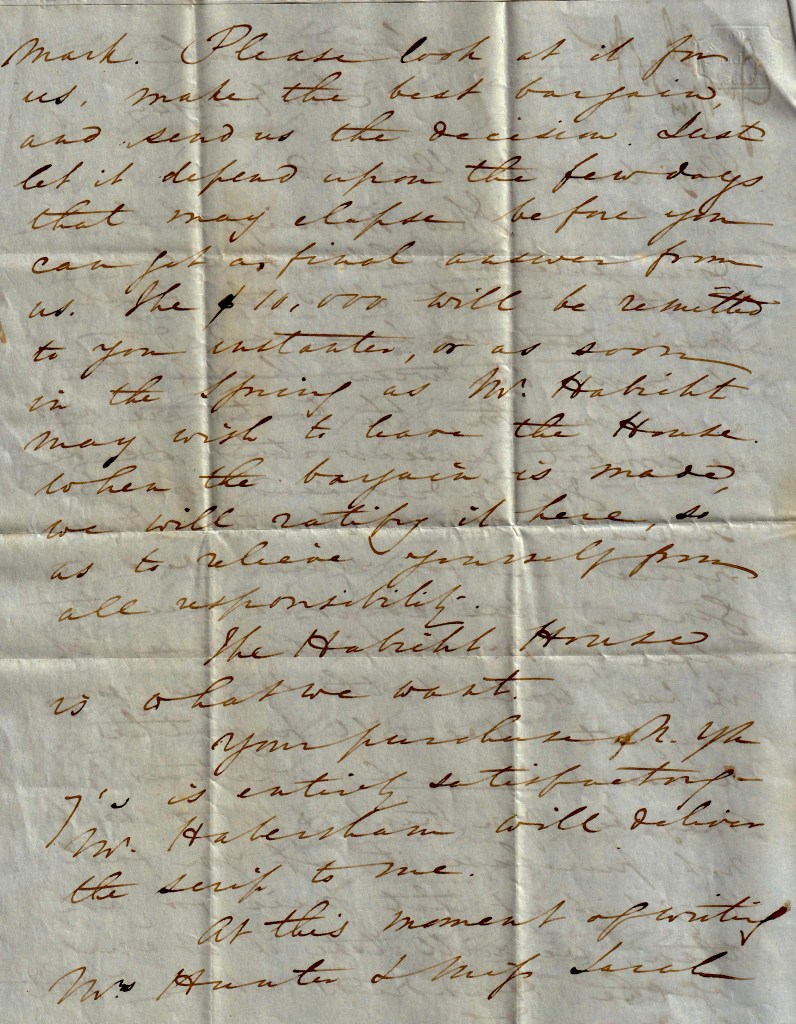 mark. Please look at it for
us, make the best bargain,
and send us the decision. Just
let it depend upon the few days
that may elapse before you
can get a final answer from
us. The $10,000 will be remitted
to you instanter, or as soon
in the Spring as Mr. Habicht
may wish to leave the House.
When the bargain is made,
we will ratify it here, so
as to relieve yourself from
all responsibility.
The Habicht House
is what we want.
Your purchase of N. Yk
7's is entirely satisfactory—
Mr. Habersham will deliver
the scrip to me.
At this moment of writing
Mrs Hunter & Miss Sarah